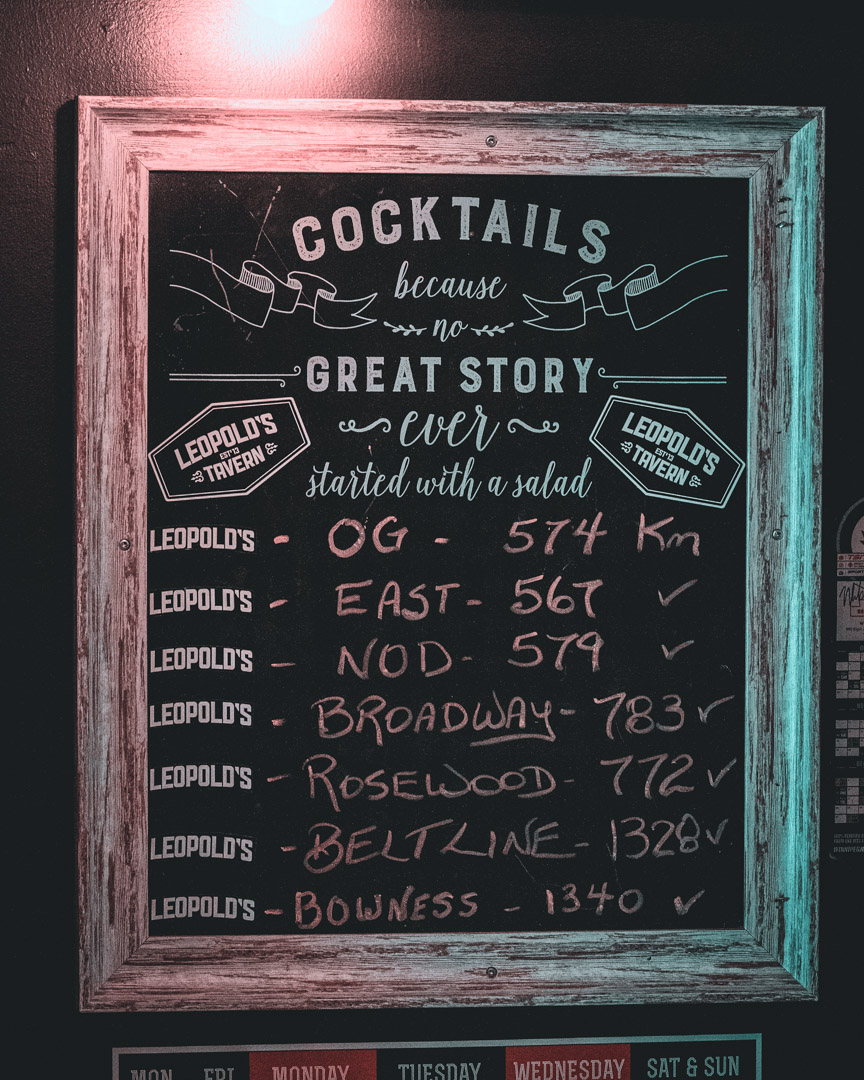 COCKTAILS
because
no
GREAT STORY
ever
started with a salad
LEOPOLD'S
EST'13
TAVERN
LEOPOLD'S
EST'13
TAVERN
LEOPOLD'S - OG - 574 Km
LEOPOLD'S - EAST - 567 ✓
LEOPOLD'S - NOD - 579 ✓
LEOPOLD'S - BROADWAY - 783 ✓
LEOPOLD'S - ROSEWOOD - 772 ✓
LEOPOLD'S - BELTLINE - 1328 ✓
LEOPOLD'S - BOWNESS - 1340 ✓
MON FRI MONDAY TUESDAY WEDNESDAY SAT & SUN